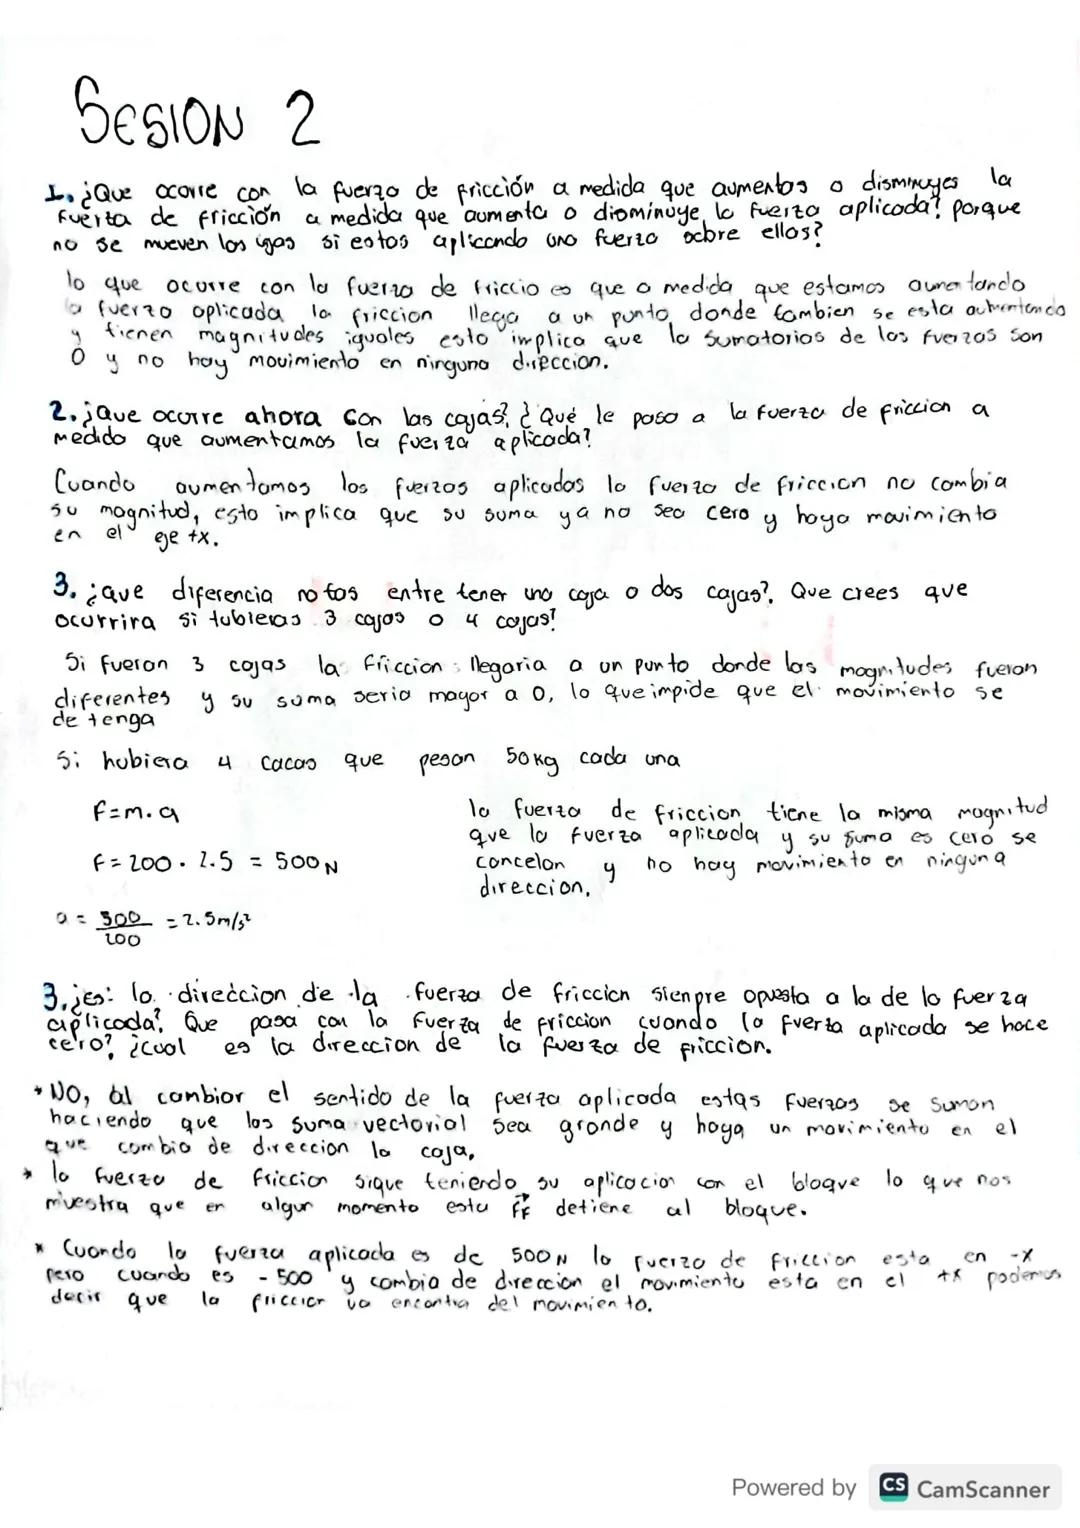 SESION 2
1. ¿Que ocorre con la fuerza de fricción a medida que aumentas o disminuyes la
fuerta de fricción a medida que aumenta o disminuye lo fuerza aplicada? porque
no se mueven los si estos aplicando una fuerza sobre ellos?
lo que ocurre con la fuerza de friccio es que a medida que estamos aumentando
la fuerzo aplicada la friccion llega a un punto donde tambien se esta aumentando
y tienen magnitudes iguales esto implica que la sumatorias de las fuerzas son
0 y no hay movimiento en ninguna direccion.
2. ¿Que ocurre ahora con las cajas? ¿Qué le pasa a la fuerza de friccion a
medido que aumentamos la fuerza aplicada?
Cuando aumentamos los fuerzas aplicadas la fuerza de friccion no cambia
su magnitud, esto implica que su suma ya no sea cero y haya movimiento
en el eje +x.
3. ¿que diferencia notas entre tener una caja o dos cajas? Que crees que
ocurrira si tubieras 3 cajas o 4 cajas?
Si fueran 3 cajas la friccion llegaria a un punto donde las magnitudes fueran
diferentes y su suma seria mayor a 0, lo que impide que el movimiento se
detenga
Si hubiera 4 cacas que pesan 50kg cada una
F=m.a
F=200 . 2.5 = 500N
a = 500/200 = 2.5m/s²
la fuerza de friccion tiene la misma magnitud
que la fuerza aplicada y su suma es cero se
concelan y no hay movimiento en ninguna
direccion.
3. ¿es: la direccion de la fuerza de friccion sienpre opuesta a la de la fuerza
aplicada? Que pasa con la fuerza de friccion cuando la fuerta aplicada se hace
cero? ¿cual es la direccion de la fuerza de friccion.
* NO, al cambiar el sentido de la fuerza aplicada estas fuerzas se suman
haciendo que las suma vectorial sea grande y haya un movimiento en el
que cambia de direccion la caja.
* la fuerza de friccion sigue teniendo su aplicacion con el bloque lo que nos
muestra que en algun momento esta Ff detiene al bloque.
* Cuando la fuerza aplicada es de 500N la fuerza de friccion esta en -x
pero cuando es -500 y cambia de direccion el movimiento esta en el +x podemos
decir que la friccion va encontra del movimiento.
Powered by CS CamScanner